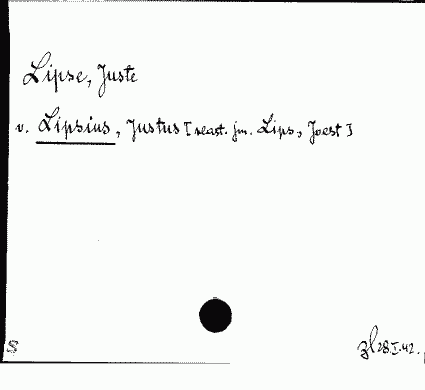 Lipse, Juste
v. Lipsius, Justus [vlast. jm. Lips, Joest]
S
zl 28.I.42.